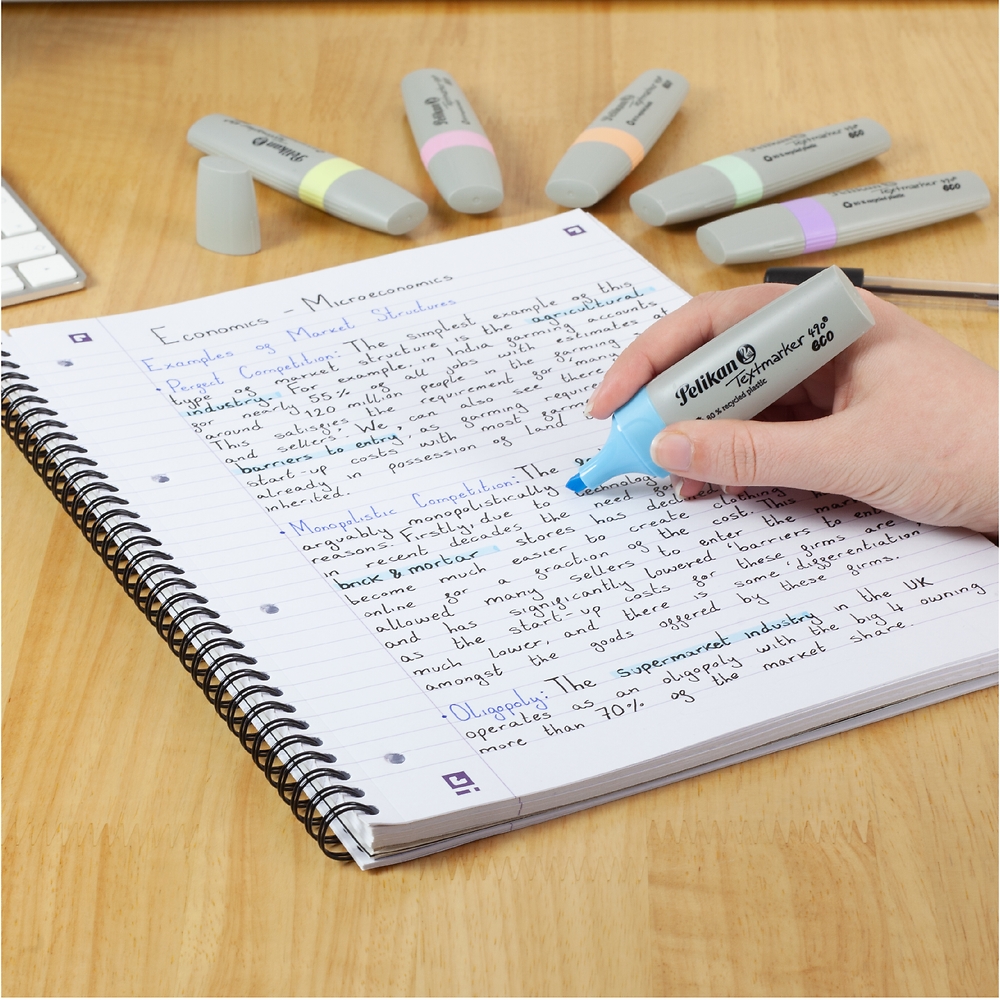 Pelikan
Pelikan
Textmarker 490
eco
Textmarker 490
eco
80% recycled plastic
Pelikan
Textmarker 490®
eco
80% recycled plastic
Economics - Microeconomics
Examples of Market Structures
• Perfect Competition: The simplest example of this
type of market structure is the agricultural
industry. For example, in India farming accounts
for nearly 55% of all jobs with estimates of
around 120 million people in the farming
This satisfies the requirement for many
and sellers. We can also see there
barriers to entry, as farming requires
start-up costs with most farming
already in possession of land
inherited.
• Monopolistic Competition: The
arguably monopolistically
reasons. Firstly, due to technology
in recent decades the need for
brick & mortar stores has declined
become much easier to create clothing
online for a fraction of the cost. This has
allowed many sellers to enter the market
and has significantly lowered 'barriers to entry'
as the start-up costs for these firms are
much lower, and there is some 'differentiation'
amongst the goods offered by these firms.
• Oligopoly: The supermarket industry in the UK
operates as an oligopoly with the big 4 owning
more than 70% of the market share.